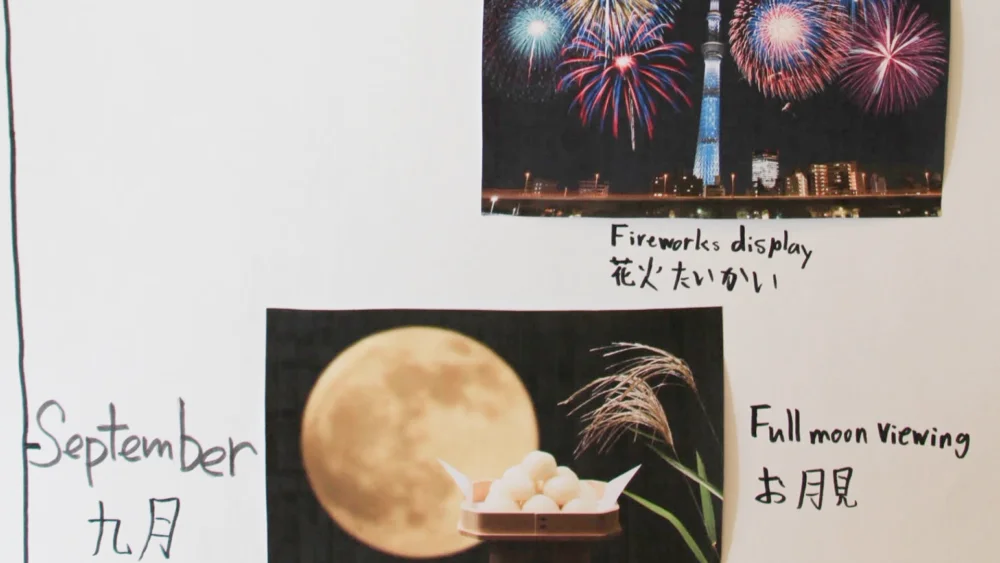 Fireworks display
花火たいかい
September
九月
Full moon viewing
お月見